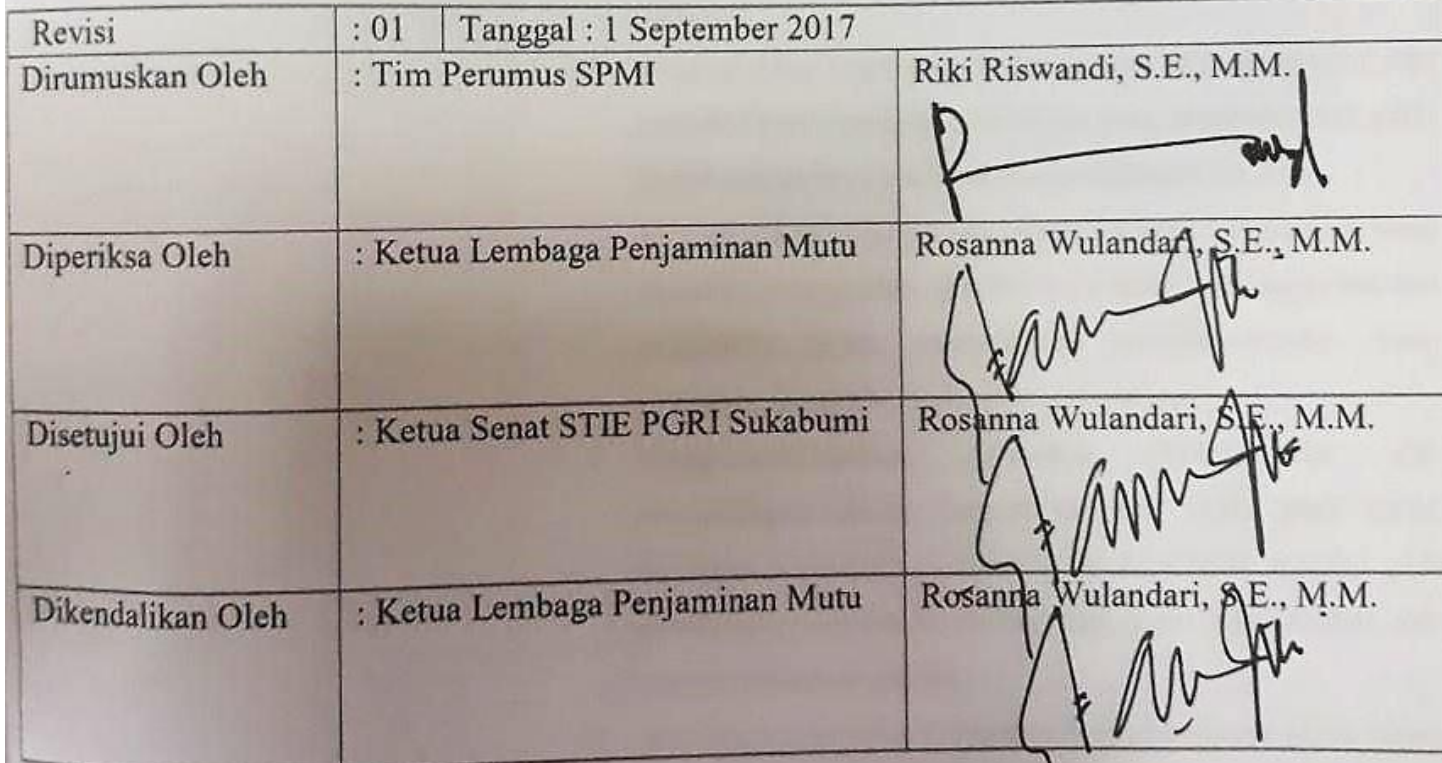 Revisi : 01 Tanggal : 1 September 2017
Dirumuskan Oleh : Tim Perumus SPMI Riki Riswandi, S.E., M.M.
Diperiksa Oleh : Ketua Lembaga Penjaminan Mutu Rosanna Wulandari, S.E., M.M.
Disetujui Oleh : Ketua Senat STIE PGRI Sukabumi Rosanna Wulandari, S.E., M.M.
Dikendalikan Oleh : Ketua Lembaga Penjaminan Mutu Rosanna Wulandari, S.E., M.M.